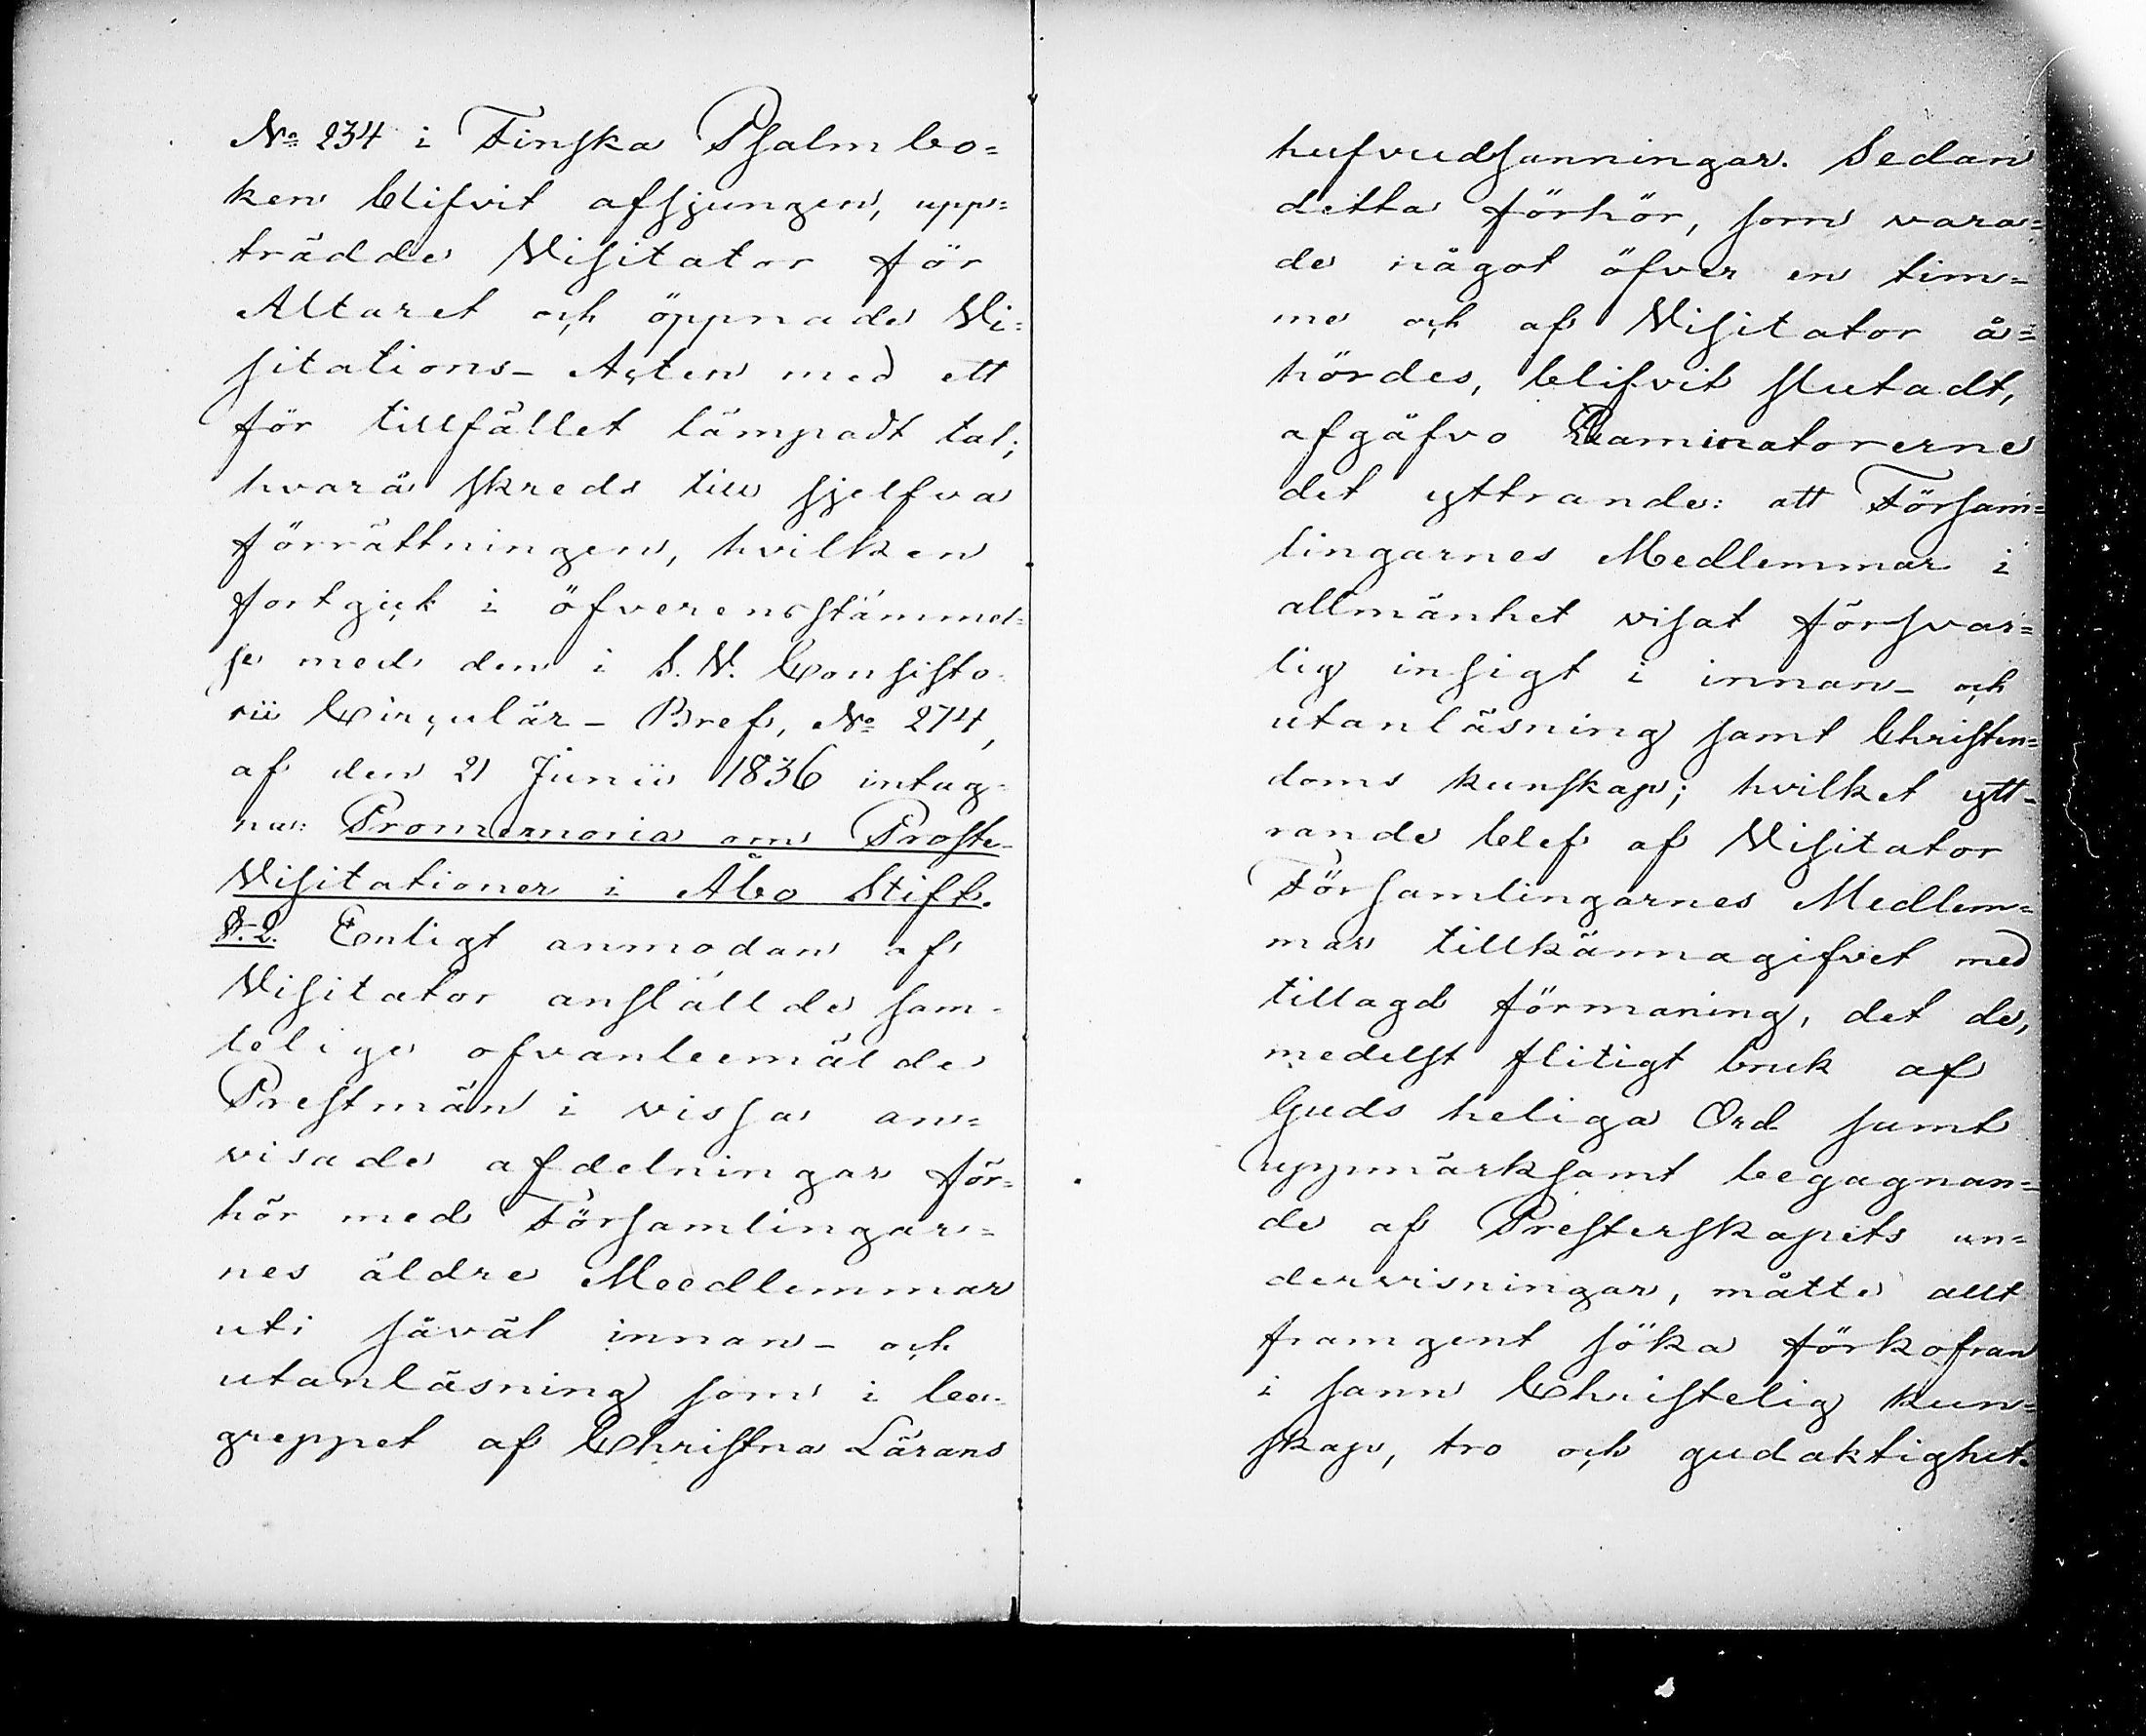 No 234 i Finska Psalmbo=
ken blifvit afsjungen, upp=
trädde Visitator för
Altaret och öppnade Vi=
sitations-Acten med ett
för tillfället lämpadt tal;
hvarå skreds till sjelfva
förrättningen, hvilken
fortgick i öfverensstämmel=
se med den i S. V. Consisto-
rii Circulär-Bref, No 274,
af den 21 Junii 1836 intag-
na: Promemoria om Proste-
Visitationer i Åbo Stift.
§. 2. Enligt anmodan af
Visitator anställde sam-
telige ofvanbemälde
Prestmän i vissa an=
visade afdelningar för=
hör med Församlingar=
nes äldre Meedlemmar
uti såväl innan- och
utanläsning som i be-
greppet af Christna Lärans
hufvudsanningar. Sedan
detta förhör, som vara=
de något öfver en tim=
me och af Visitator å=
hördes, blifvit slutadt,
afgåfvo Examinatorerne
det yttrande: att Försam=
lingarnes Medlemmar i
allmänhet visat försvar=
lig insigt i innan- och
utanläsning samt Christen=
doms kunskap; hvilket ytt-
rande blef af Visitator
Församlingarnes Medlem=
mar tillkännagifvet med
tillagd förmaning, det de,
medelst flitigt bruk af
Guds heliga Ord samt
uppmärksamt begagnan=
de af Presterskapets un=
dervisningar, måtte allt
framgent söka förkofran
i sann Christelig kun=
skap, tro och gudaktighet.